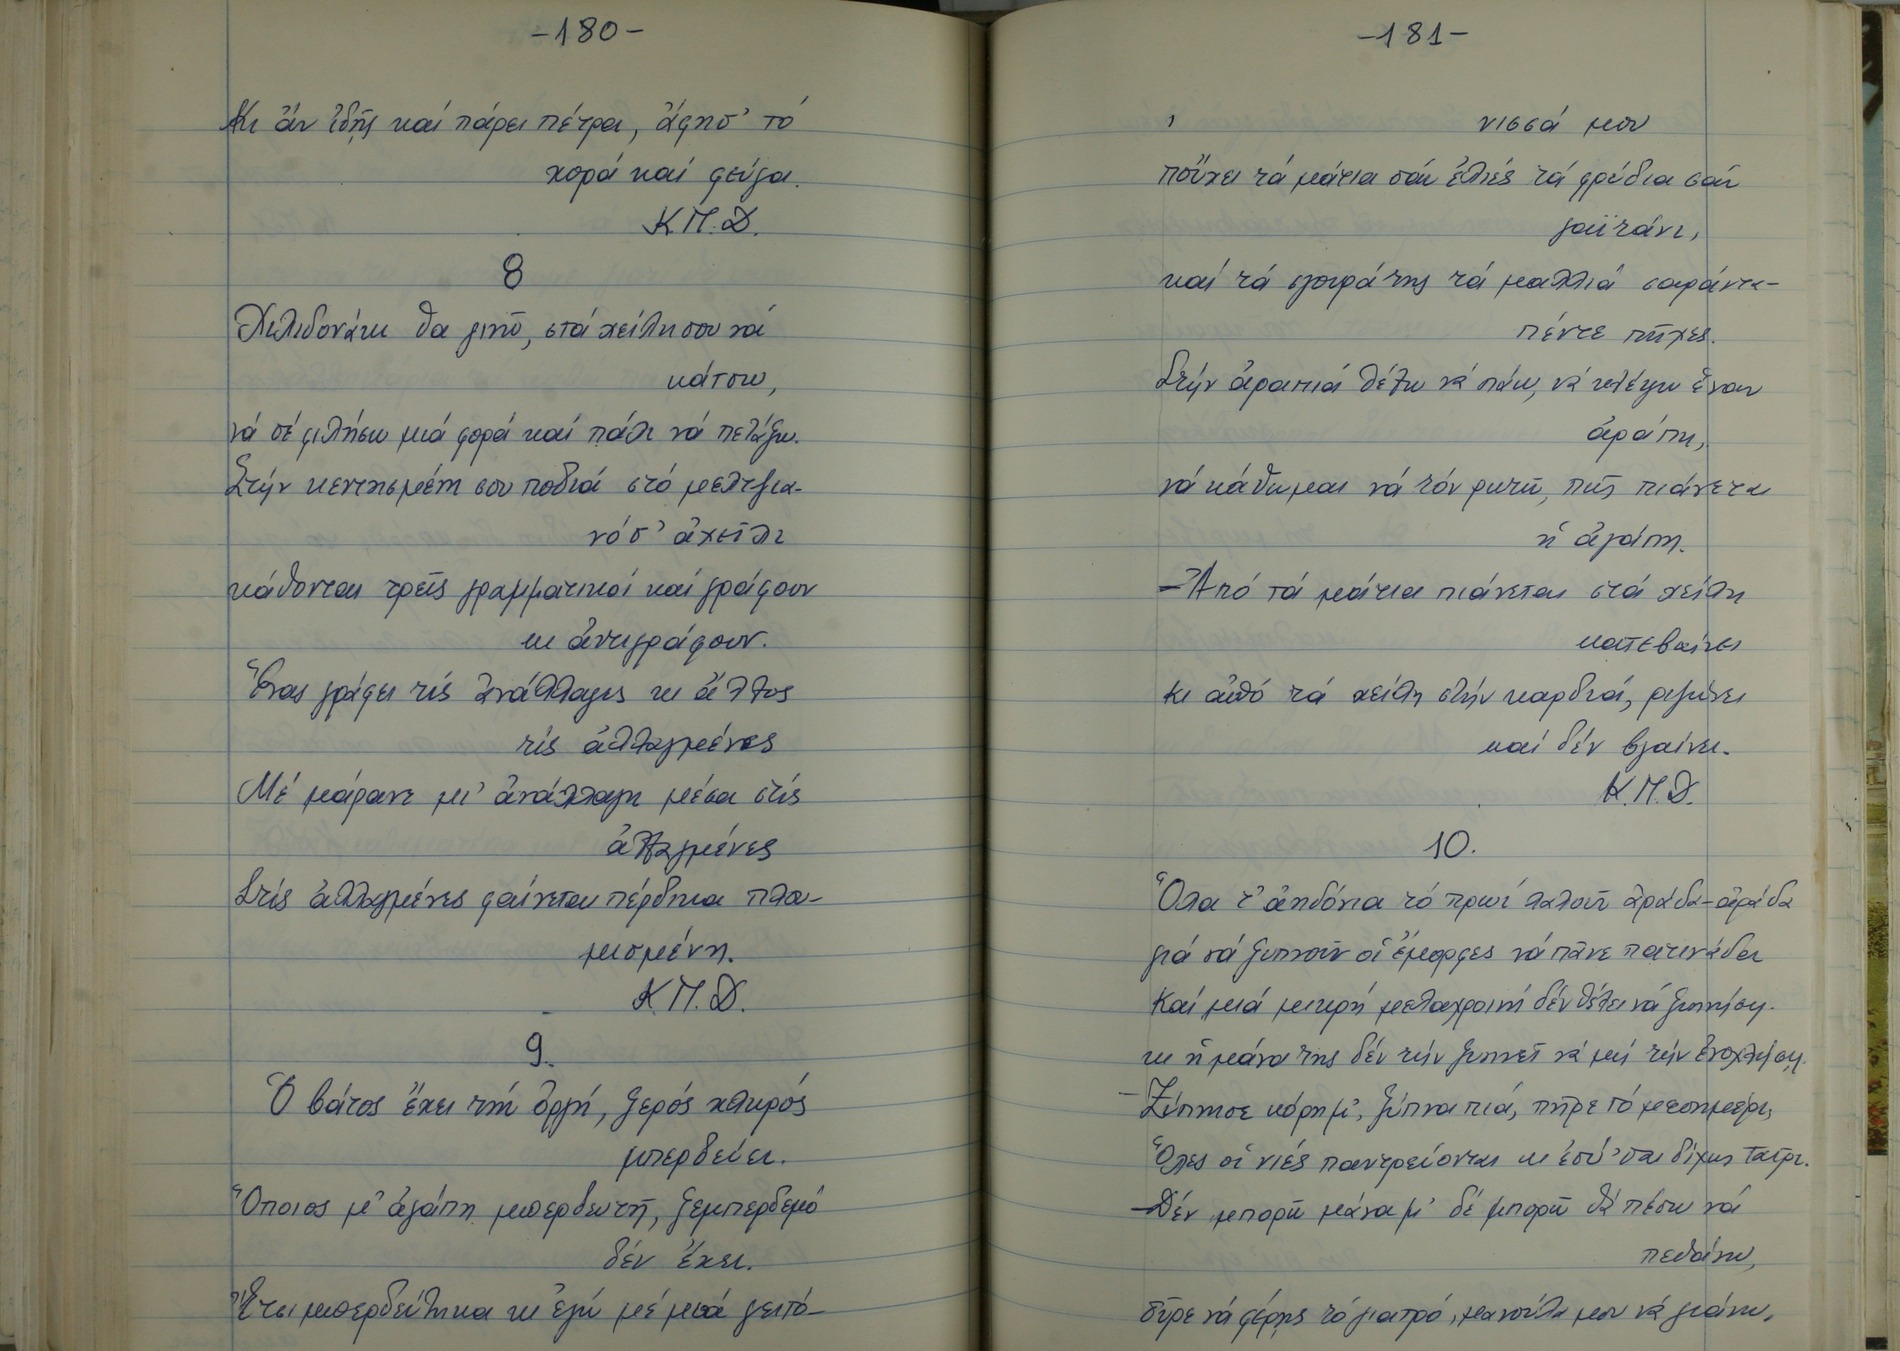 -180-
Κι ἄν ἰδῆς καί πάρει πέτρα, ἄφησ' τό
χορό καί φεύγα.
Κ.Π.Δ.
8
Χελιδονάκι θα γινῶ, στά χείλη σου νά
κάτσω,
νά σέ φιλήσω μιά φορά καί πάλι νά πετάξω.
Στήν κεντησμένη σου ποδιά στό μελτζια-
νό σ' ἀχεῖλι
κάθονται τρεῖς γραμματικοί καί γράφουν
κι ἀντιγράφουν.
Ἕνας γράφει τίς ἀνάλλαγες κι ἄλλος
τίς ἀλλαγμένες
Μέ μάρανε μι' ἀνάλλαγη μέσα στίς
ἀλλαγμένες
Στίς ἀλλαγμένες φαίνεται πέρδικα πλου-
μισμένη.
Κ.Π.Δ.
9.
Ὁ βάτος ἔχει τήν ὀργή, ξερός χλωρός
μπερδεύει.
Ὅποιος μ' ἀγάπη μπερδευτῆ, ξεμπερδεμό
δέν ἔχει.
Ἔτσι μπερδεύτηκα κι ἐγώ μέ μιά γειτό-
-181-
νισσά μου
πὄχει τά μάτια σάν ἐλιές τά φρύδια σάν
γαϊτάνι,
καί τά σγουρά της τά μαλλιά σαράντα-
πέντε πῆχες.
Στήν ἀραπιά θέλω νά πάω, νά κλέψω ἕναν
ἀράπη,
νά κάθωμαι νά τόν ρωτῶ, πῶς πιάνεται
ἡ ἀγάπη.
-Ἀπό τά μάτια πιάνεται στά χείλη
κατεβαίνει
κι ἀπό τά χείλη στήν καρδιά, ριζώνει
καί δέν βγαίνει.
Κ.Π.Δ.
10.
Ὅλα τ' ἀηδόνια τό πρωί λαλοῦν ἀράδα-ἀράδα
γιά νά ξυπνοῦν οἱ ἔμορφες νά πᾶνε πατινάδα
Καί μιά μικρή μελαχροινή δέν θέλει νά ξυπνήση.
κι ἡ μάνα της δέν τήν ξυπνεῖ νά μή τήν ἐνοχλήση.
-Ξύπνησε κόρη μ', ξύπνα πιά, πῆρε τό μεσημέρι,
Ὅλες οἱ νιές παντρεύονται κι ἐσύ 'σαι δίχως ταῖρι.
-Δέν μπορῶ μάνα μ' δέ μπορῶ θά πέσω νά
πεθάνω,
σῦρε νά φέρης τό γιατρό, μανούλα μου νά γιάνω.